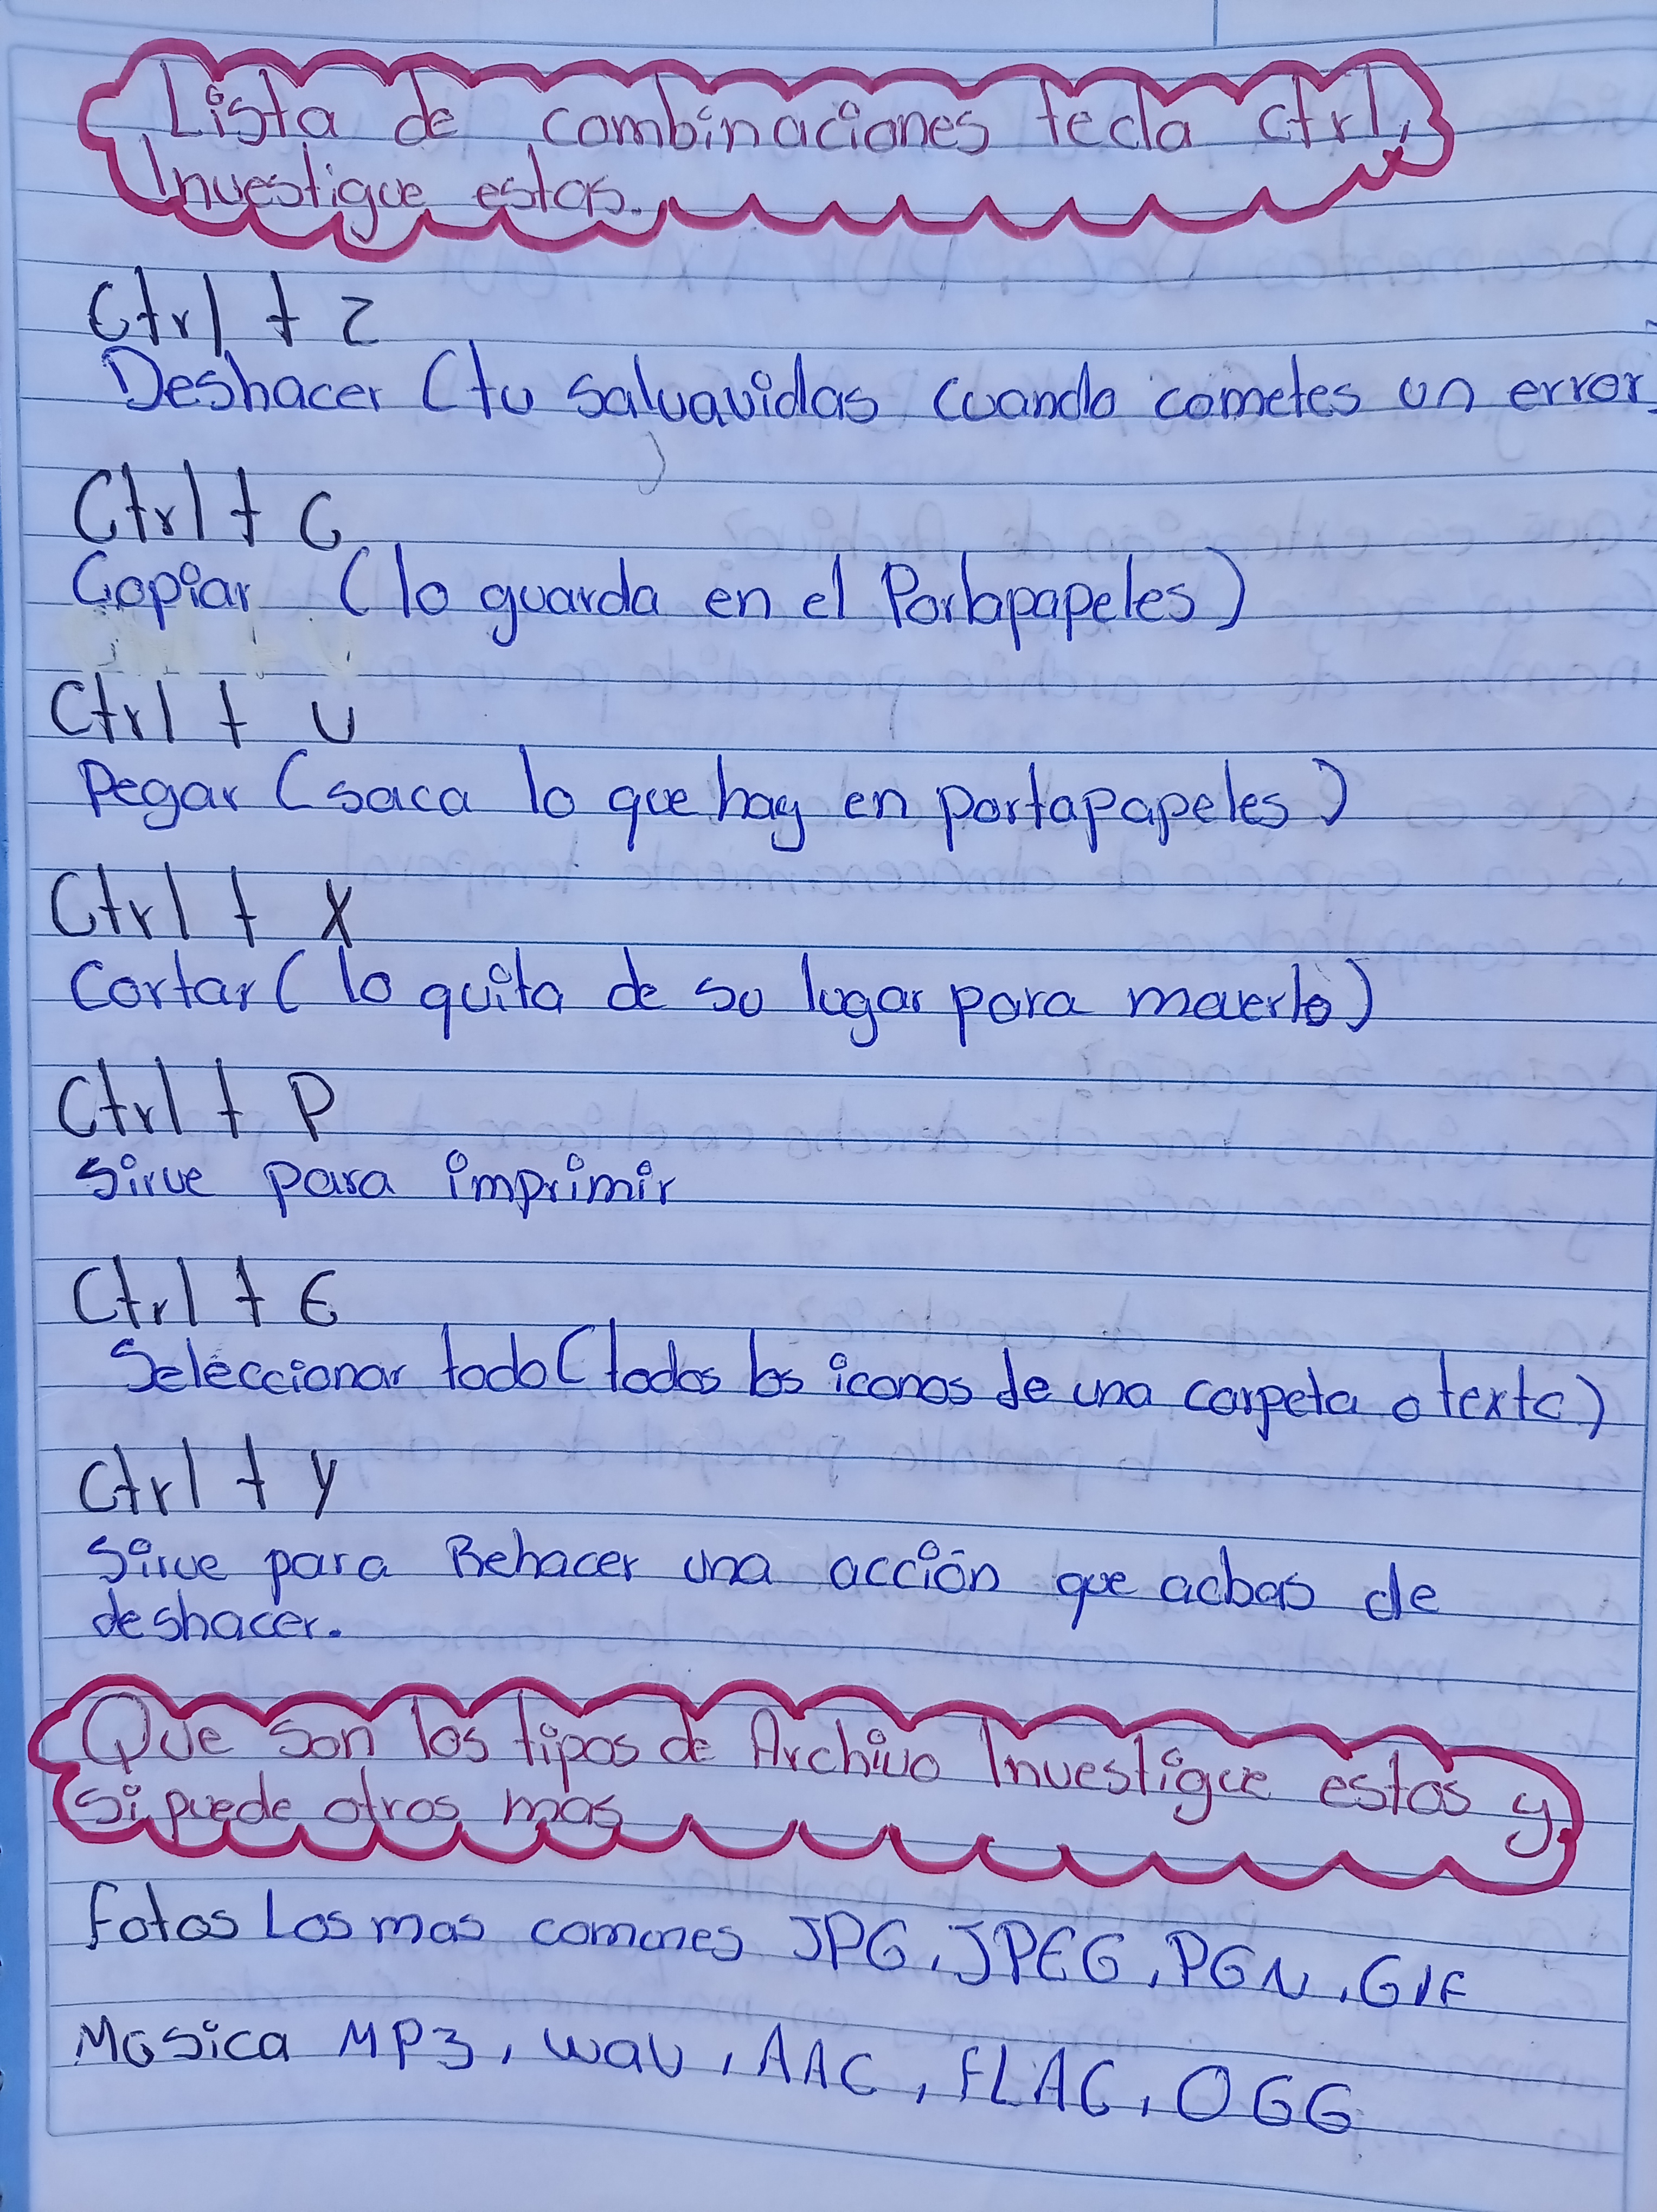 Lista de combinaciones tecla ctrl,
Investigue estas.
Ctrl + z
Deshacer (tu salvavidas cuando cometes un error.
)
Ctrl + C
Copiar (lo guarda en el Portapapeles)
Ctrl + v
Pegar (saca lo que hay en portapapeles)
Ctrl + X
Cortar (lo quita de su lugar para moverlo)
Ctrl + P
Sirve para imprimir
Ctrl + E
Seleccionar todo (todos los iconos de una carpeta o texto)
Ctrl + y
Sirve para Rehacer una acción que acbas de
deshacer.
Que son los tipos de Archivo Investigue estos y
si puede otros mas
Fotos Los mas comunes JPG, JPEG, PGN, GIF
Musica MP3, wav, AAC, FLAC, OGG